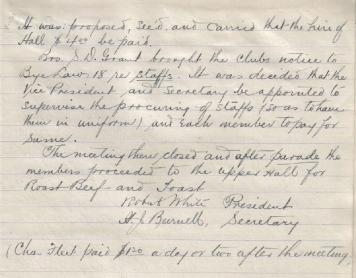 It was proposed, sec'd and carried that the hire of
Hall $4.00 be paid.
Bro. S. D. Grant brought the Clubs notice to
Bye Law 18 per Staffs. It was decided that the
Vice President and Secretary be appointed to
supervise the procuring of Staffs (so as to have
them in uniform) and each member to pay for
same.
The meeting then closed and after parade the
members proceeded to the upper Hall for
Roast Beef and Toast
Robt White President
H. J. Burnell, Secretary
(Chas Fleet paid a day or two after the meeting)